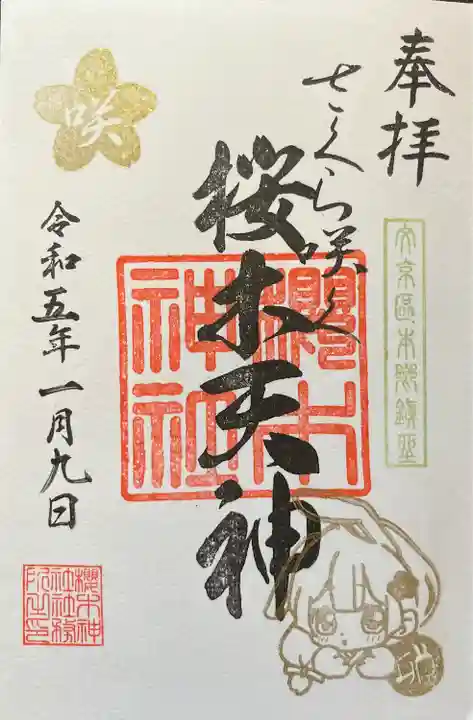 奉拝
さくら咲く
文京區本郷鎮座
櫻木神社
桜木天神
咲
令和五年一月九日
櫻木神社社務所之印